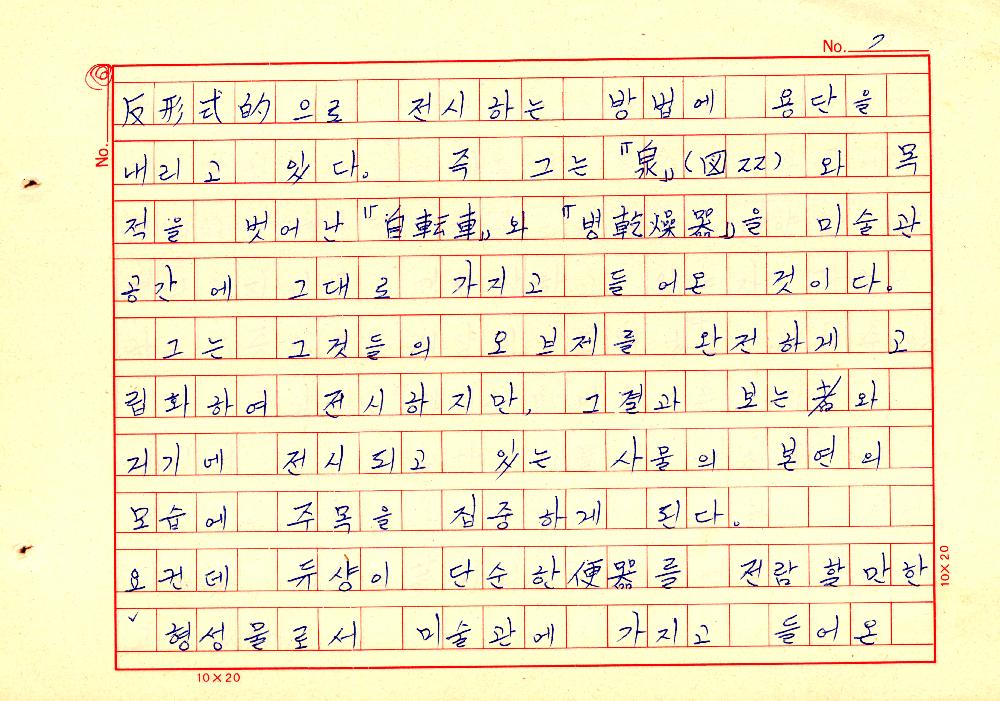 No. 7
No.
反形式的으로 전시하는 방법에 용단을
내리고 있다. 즉 그는 『泉』(図22) 와 목
적을 벗어난 『自転車』와 『병乾燥器』을 미술관
공간에 그대로 가지고 들어온 것이다.
그는 그것들의 오브제를 완전하게 고
립화하여 전시하지만, 그결과 보는者와
거기에 전시되고 있는 사물의 본연의
모습에 주목을 집중하게 된다.
요컨데 듀샹이 단순한便器를 전람할만한
형성물로서 미술관에 가지고 들어온
10×20
10×20